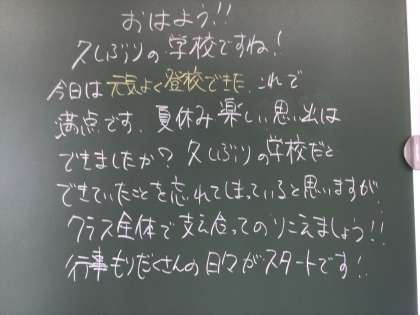 おはよう!!
久しぶりの学校ですね!
今日は元気よく登校できた、これで
満点です。夏休み楽しい思い出は
できましたか?久しぶりの学校だと
できていたことを忘れてしまっていると思いますが
クラス全体で支え合ってのりこえましょう!!
行事もりだくさんの日々がスタートです!